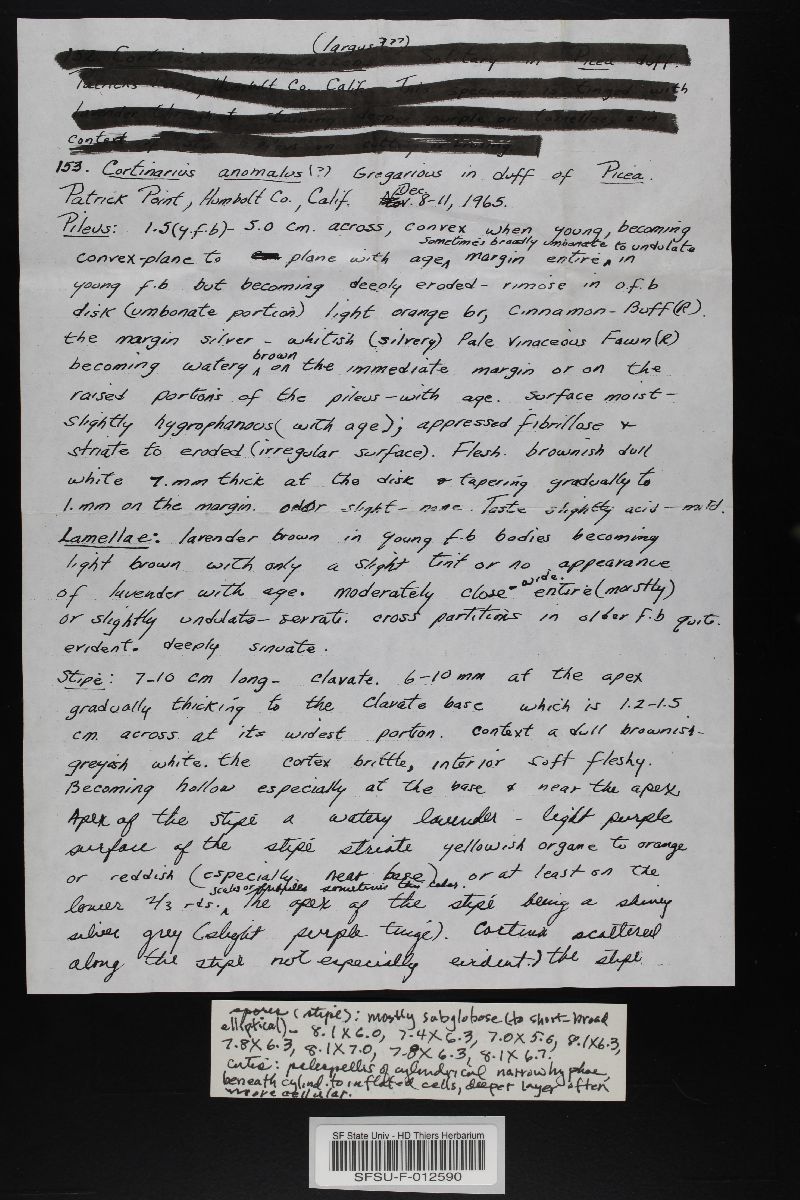 (largus???)
152 Cortinarius solitary in Picea duff.
Patricks Humbolt Co. Calif. This specimen is tinged with
lavender throughout staining deeper purple on lamellae & in
context
153. Cortinarius anomalus(?) Gregarious in duff of Picea.
Patrick Point, Humbolt Co., Calif. Dec. 8-11, 1965.
Pileus: 1.5(y.f.b)- 5.0 cm. across, convex when young, becoming
sometimes broadly umbonate to undulate
convex-plane to plane with age, margin entire, in
young f.b but becoming deeply eroded-rimose in o.f.b
disk (umbonate portion) light orange br, Cinnamon-Buff(R).
the margin silver-whitish (silvery) Pale Vinaceous Fawn(R)
brown
becoming watery on the immediate margin or on the
raised portions of the pileus-with age. Surface moist-
slightly hygrophanous (with age); appressed fibrillose &
striate to eroded (irregular surface). Flesh. brownish dull
white 7.mm thick at the disk & tapering gradually to
1.mm on the margin. odor slight-none. Taste slightly acid-mild.
Lamellae: lavender brown in young f.b bodies becoming
light brown with only a slight tint or no appearance
of lavender with age. moderately close-wide. entire (mostly)
or slightly undulate-serrate. cross partitions in older f.b quite.
evident. deeply sinuate.
Stipe: 7-10 cm long- clavate. 6-10 mm at the apex
gradually thicking to the clavate base which is 1.2-1.5
cm. across at its widest portion. Context a dull brownish-
greyish white. the cortex brittle, interior soft fleshy.
Becoming hollow especially at the base & near the apex,
Apex of the stipe a watery lavender - light purple
surface of the stipe striate yellowish organe to orange
or reddish (especially near base) or at least on the
scales or fibrils sometimes this color.
lower 2/3 rds. The apex of the stipe being a shiny
silver grey (slight purple tinge). Cortina scattered
along the stipe not especially evident.) the stipe
spores (stipe): mostly subglobose (to short-broad
elliptical)- 8.1 X 6.0, 7.4 X 6.3, 7.0 X 5.6, 8.1 X 6.3,
7.8 X 6.3, 8.1 X 7.0, 7.8 X 6.3, 8.1 X 6.7.
Cutis: pileipellis of cylindrical narrow hyphae,
beneath cylind. to inflated cells, deeper layer often
more cellular.
SF State Univ - HD Thiers Herbarium
SFSU-F-012590